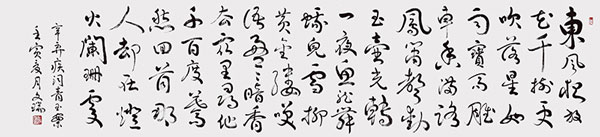 東風夜放
花千樹更
吹落星如
雨寶馬雕
車香滿路
鳳簫聲動
玉壺光轉
一夜魚龍舞
蛾兒雪柳
黃金縷笑
語盈盈暗香
去衆里尋他
千百度驀
然回首那
人却在燈
火闌珊處
辛弃疾詞青玉案
壬寅夏月文瑞